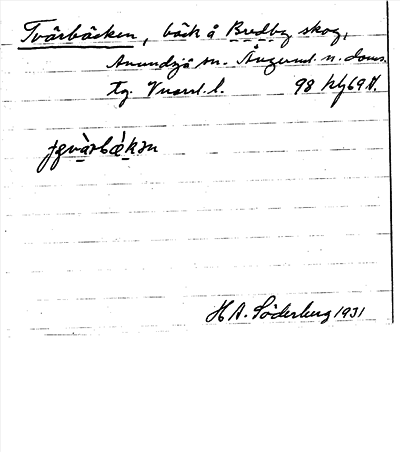 Tvärbäcken, bäck å Bredby skog,
Anundsjö sn. Ångerml. n. doms.
tg. Vnorrl. l. 98
H A. Söderberg 1931